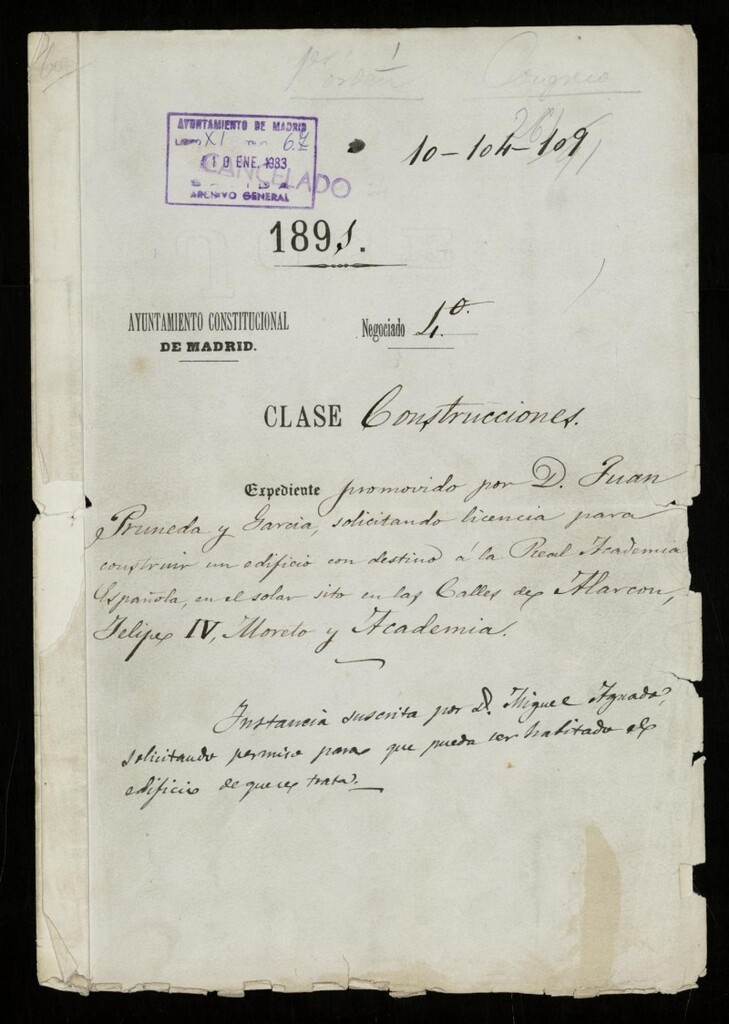 AYUNTAMIENTO DE MADRID
LIBRO XI 67
10 ENE. 1983
CANCELADO
ARCHIVO GENERAL
10-104-109
1891.
AYUNTAMIENTO CONSTITUCIONAL
DE MADRID.
Negociado 4º.
CLASE Construcciones.
Expediente promovido por D. Juan
Pruneda y Garcia, solicitando licencia para
construir un edificio con destino á la Real Academia
Española, en el solar sito en las Calles de Alarcon,
Felipe IV, Moreto y Academia.
Instancia suscrita por D. Miguel Aguado,
solicitando permiso para que pueda ser habitado el
edificio de que se trata.